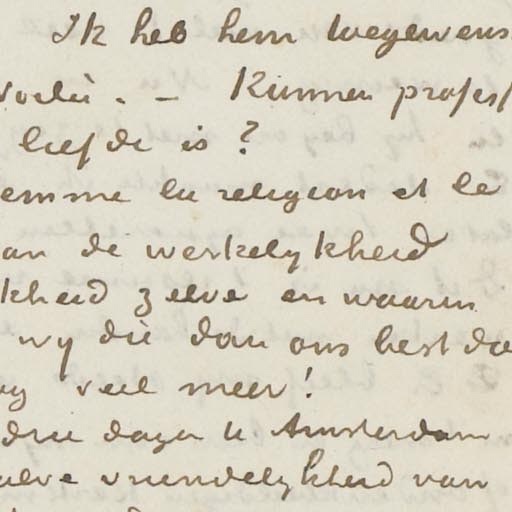 Ik heb hem wegewens
voilà. — Kunnen profess
liefde is?
emme la religion et le
an de werkelykheid
kheid zelve en waarin
wy die dan ons best do
ag veel meer!
drie dagen te Amsterdam
alve vriendelykheid van